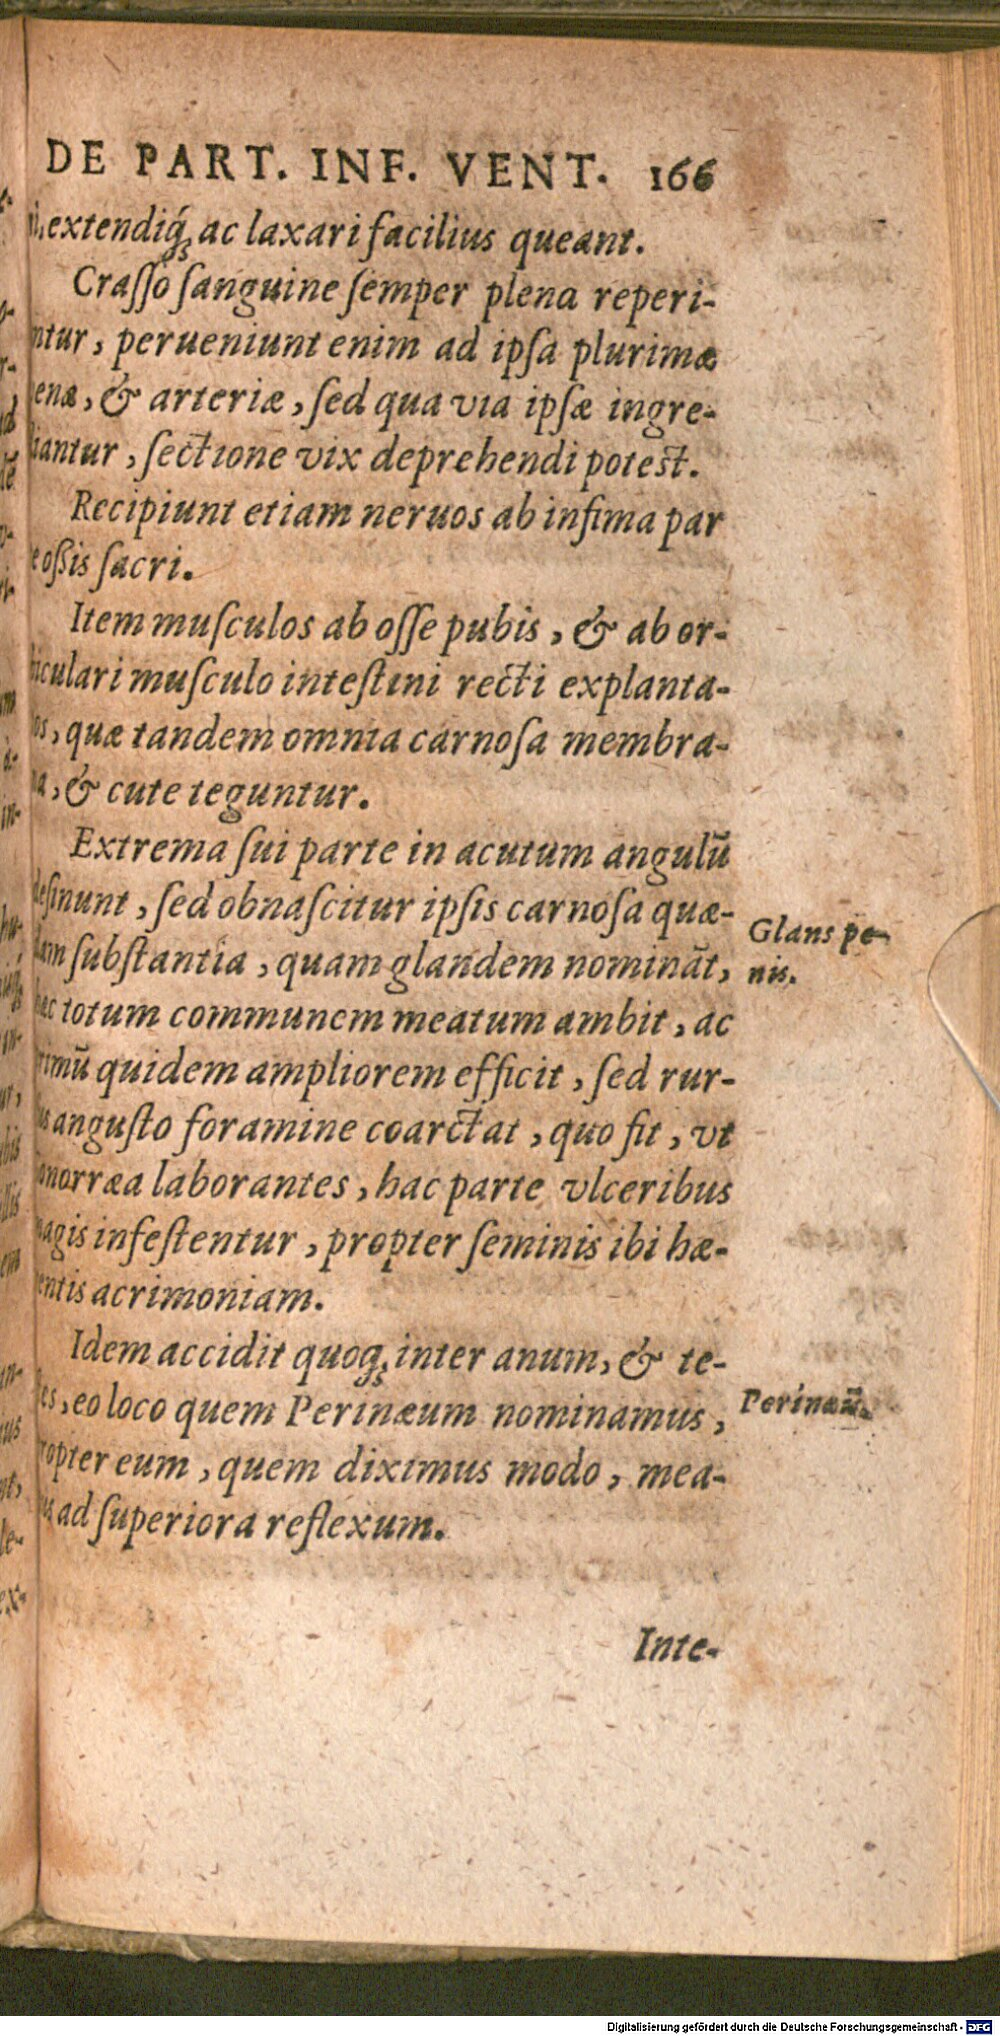 DE PART. INF. VENT. 166
extendiq́; ac laxari facilius queant.
Craſſo ſanguine ſemper plena reperi-
ntur, perueniunt enim ad ipſa plurimæ
enæ, & arteriæ, ſed qua via ipſæ ingre-
iantur, ſectione vix deprehendi poteſt.
Recipiunt etiam neruos ab infima par
e oſsis ſacri.
Item muſculos ab oſſe pubis, & ab or-
iculari muſculo inteſtini recti explanta-
os, quæ tandem omnia carnoſa membra-
a, & cute teguntur.
Extrema ſui parte in acutum angulū
deſinunt, ſed obnaſcitur ipſis carnoſa quæ-
dam ſubſtantia, quam glandem nominãt,
Glans pe-
nis.
ac totum communem meatum ambit, ac
rimū quidem ampliorem efficit, ſed rur-
us anguſto foramine coarctat, quo fit, vt
onorræa laborantes, hac parte vlceribus
magis infeſtentur, propter ſeminis ibi hæ-
entis acrimoniam.
Idem accidit quoq; inter anum, & te-
es, eo loco quem Perinæum nominamus,
Perinæū.
ropter eum, quem diximus modo, mea-
us ad ſuperiora reflexum.
Inte-
Digitalisierung gefördert durch die Deutsche Forschungsgemeinschaft - DFG